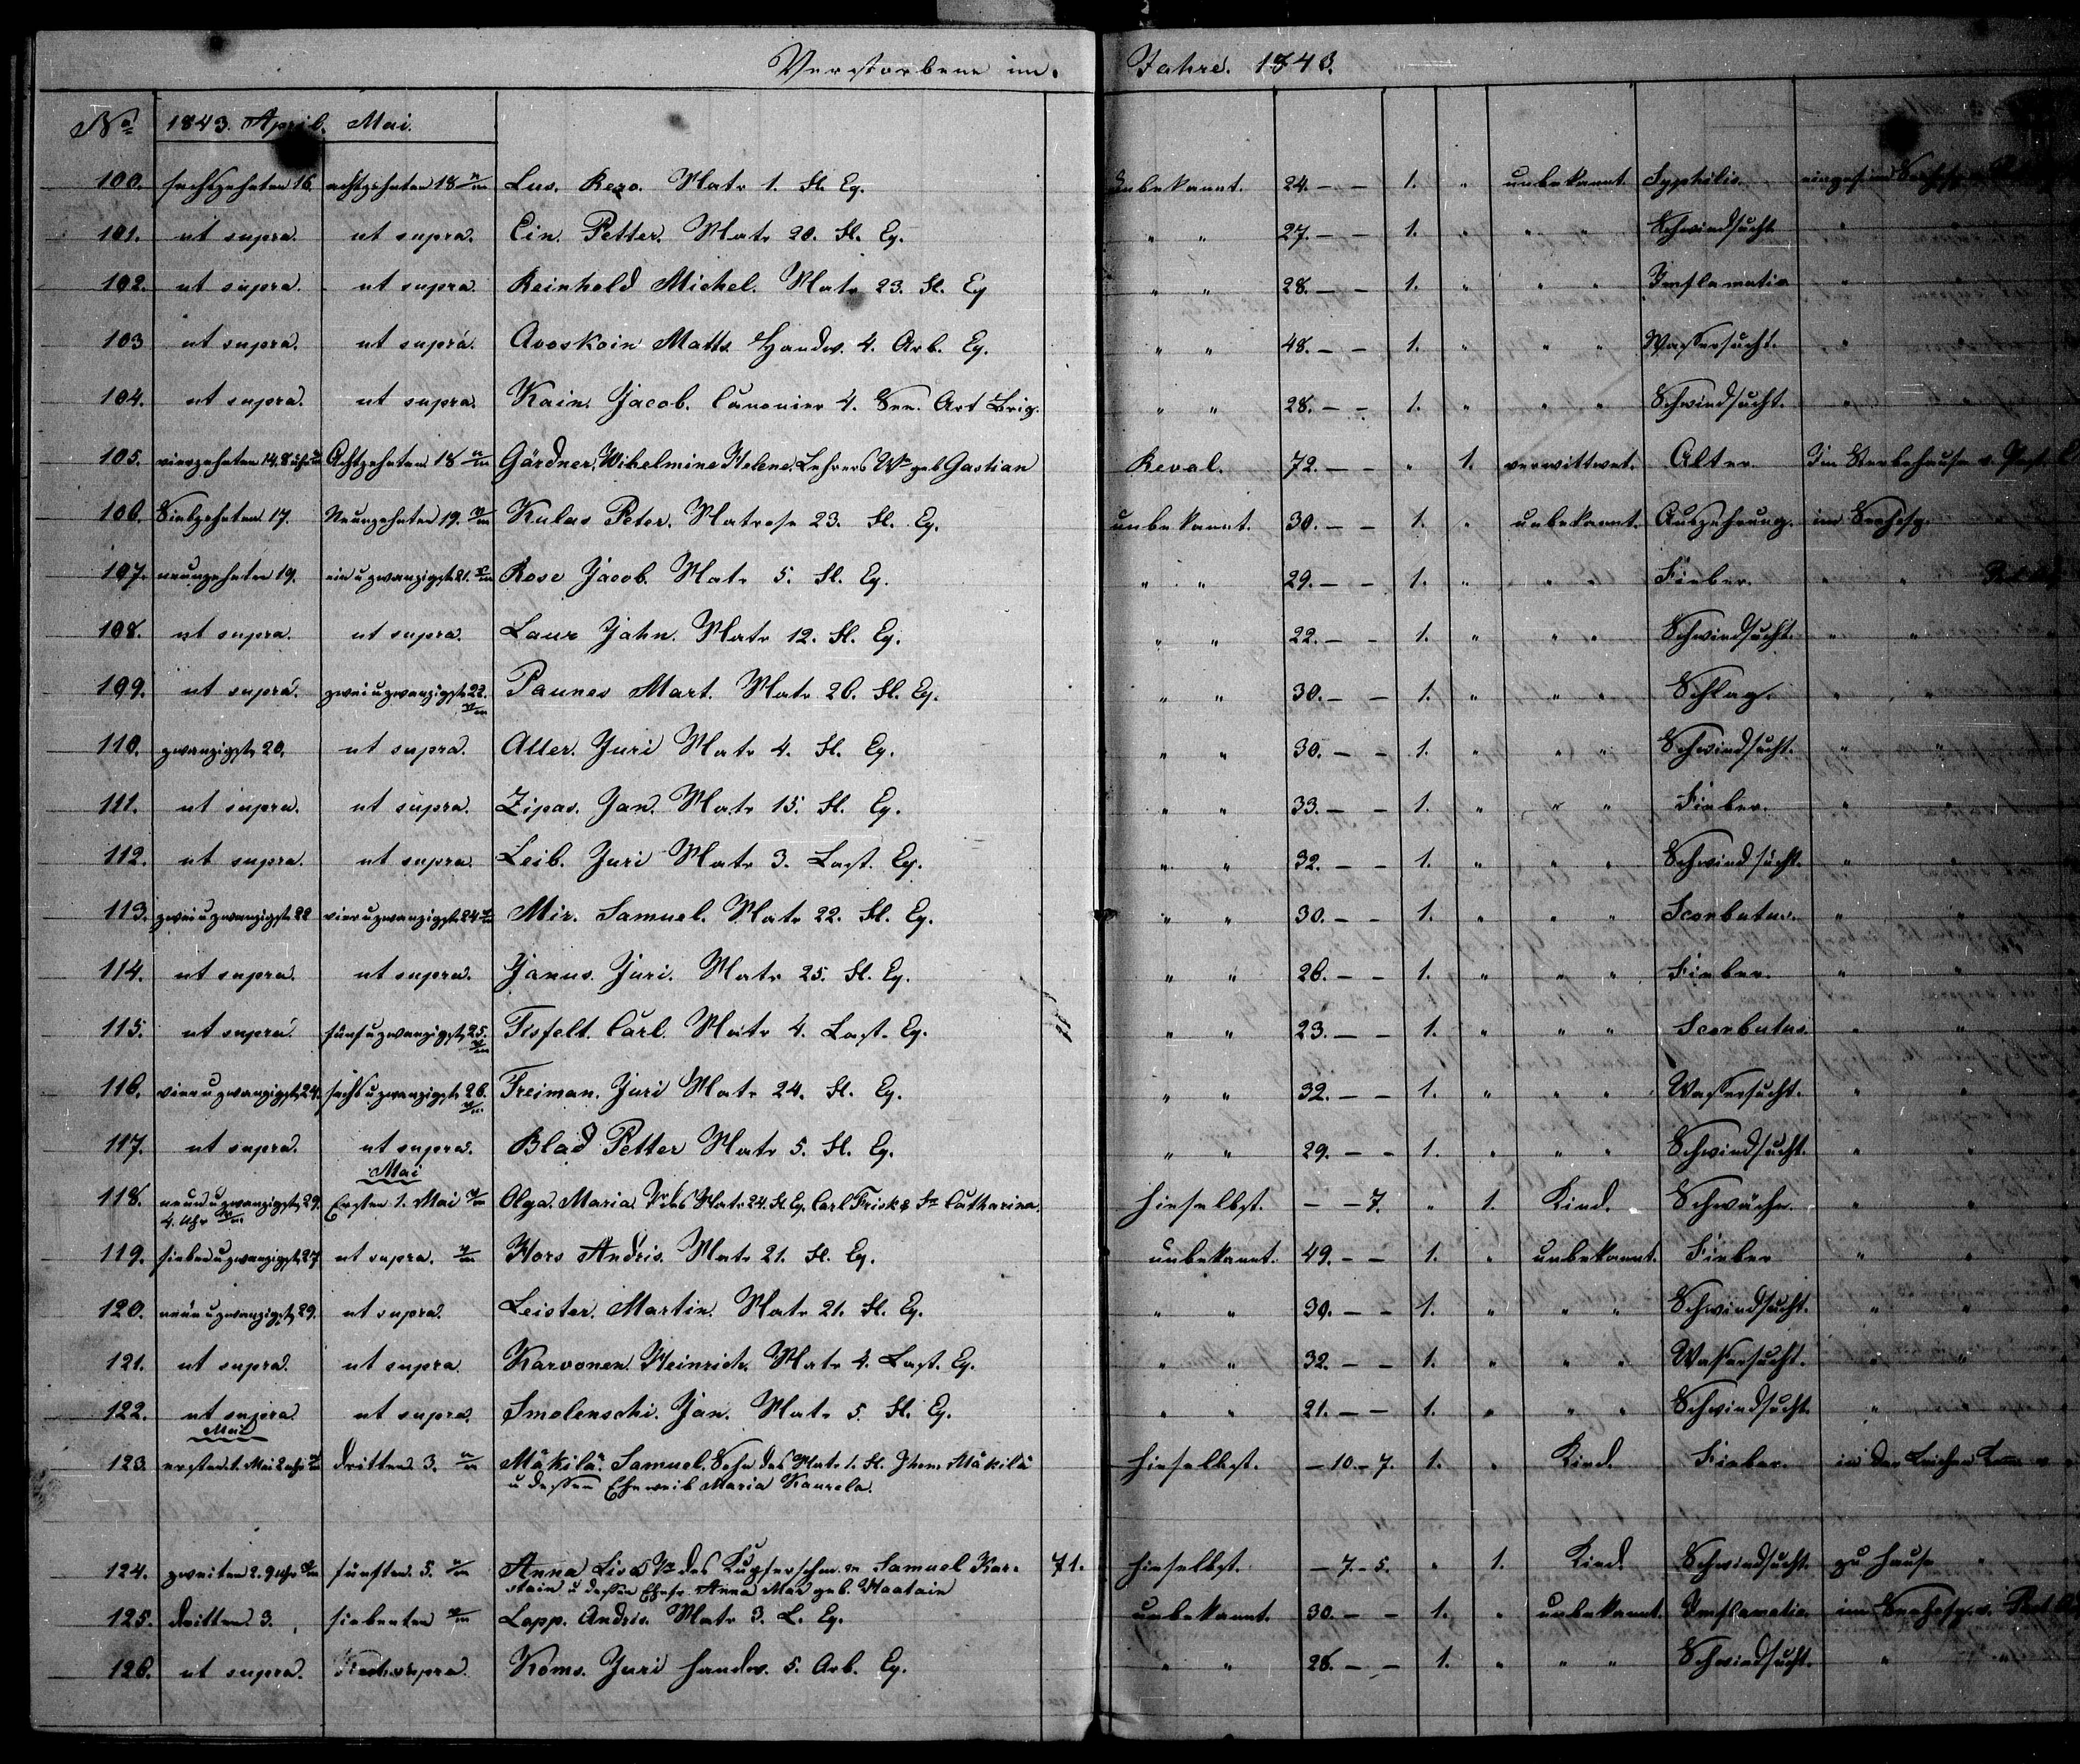 Verstorbene im Jahre. 1843.
No 1843. April. Mai.
100. sechszehnten 16. achtzehnten 18 Lus. Rezo. Matr 1. Fl. Eq. Unbekannt. 24. – – 1. " unbekannt. Syphilis.
101. ut supra. ut supra. Cin. Petter. Matr 20. Fl. Eq. " " 27. – – 1. " " " Schwindsucht " "
102. ut supra. ut supra. Reinhold Michel. Matr 23. Fl. Eq " " 28. – – 1. " " " Inflamatio " "
103 ut supra. ut supra. Avoskoin Matts Handw. 4. Arb. Eq. " " 48. – – 1. " " " Wassersucht. " "
104. ut supra. ut supra. Kain. Jacob. Canonier 4. See. Art Brig. " " 28. – – 1. " " " Schwindsucht. " "
105. vierzehnten 14. 8 uhr Achtzehnten 18 Gärdner, Wihelmine Helene, Lehrers Wwe geb Gastian Reval. 72. – – " 1. verwittwet. Alter. Im Sterbehause v. Past
106. Siebzehnten 17. Neunzehnten 19. Kulas Peter. Matrose 23. Fl. Eq. unbekannt. 30. – – 1. " unbekannt. Auszehrung. im Seehosp.
107. neunzehnten 19. ein u zwanzigst. 21. Rose Jacob. Matr 5. Fl. Eq. " " 29. – – 1. " " " Fieber. " "
108. ut supra. ut supra. Laur Jahn. Matr 12. Fl. Eq. " " 22. – – 1. " " " Schwindsucht. " "
109. ut supra. zwei u zwanzigst 22. Pauner Mart. Matr 26. Fl. Eq. " " 30. – – 1. " " " Schlag. " "
110. zwanzigst 20. ut supra. Aller. Juri Matr 4. Fl. Eq. " " 30. – – 1. " " " Schwindsucht. " "
111. ut supra. ut supra. Zipas. Jan. Matr 15. Fl. Eq. " " 33. – – 1. " " " Fieber. " "
112. ut supra. ut supra. Leib. Juri Matr 3. Last. Eq. " " 32. – – 1. " " " Schwindsucht. " "
113. zwei u zwanzigst 22 vier u zwanzigst 24 Mir. Samuel. Matr 22. Fl. Eq. " " 30. – – 1. " " " Scorbutus. " "
114. ut supra. ut supra. Janus. Juri. Matr 25. Fl. Eq. " " 26. – – 1. " " " Fieber. " "
115. ut supra fünf u zwanzigst 25. Fisfelt. Carl. Matr 4. Last. Eq. " " 23. – – 1. " " " Scorbutus. " "
116. vier u zwanzigst 24. sechs u zwanzigst 26. Freiman. Juri Matr 24. Fl. Eq. " " 32. – – 1. " " " Wassersucht. " "
117. ut supra. ut supra. Blad Petter Matr 5. Fl. Eq. " " 29. – – 1. " " " Schwindsucht. " "
Mai
118. neun u zwanzigst 29. Ersten 1. Mai Olga. Maria Tr des Matr 24. Fl. Eq. Carl Friske Catharina. hieselbst. – – 7. " 1. Kind. Schwäche. " "
4. Uhr
119. sieben u zwanzigst 27 ut supra. Hors Andris. Matr 21. Fl. Eq. unbekannt. 49. – – 1. " unbekannt. Fieber " "
120. neun u zwanzigst 29. ut supra. Leister. Martin. Matr 21. Fl. Eq. " " 30. – – 1. " " " Schwindsucht. " "
121. ut supra. ut supra. Karvonen. Heinrich. Matr 4. Last. Eq. " " 32. – – 1. " " " Wassersucht. " "
122. ut supra ut supra. Smolenschi. Jan. Matr 5. Fl. Eq. " " 21. – – 1. " " " Schwindsucht. " "
Mai
123. ersten 1. Mai 2 uhr dritten 3. Mäkilä. Samuel. Sohn des Matr 1. Fl. Thom Mäkilä hieselbst. – 10. – 7. 1. " Kind. Fieber. in der Leichen
u dessen Eheweib Maria Kaurela.
124. zweiten 2. 9 uhr fünften 5. Anna Lisa Tr des Kupferschm Samuel Kar- 71. hieselbst. – 7. – 5. " 1. Kind. Schwindsucht. zu Hause "
stain u dessen Ehefr. Anna Mar geb. Haatain
125. dritten 3. siebenten Lapp. Andris. Matr 3. L. Eq. unbekannt. 30. – – 1. " unbekannt. Inflamatio. im Seehosp. v.
126. ut supra. ut supra. Koms. Juri Handw. 5. Arb. Eq. " " 28. – – 1. " " " Schwindsucht. " "